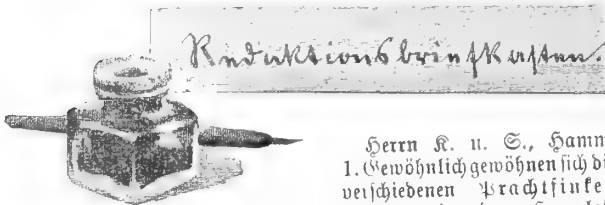 Redaktionsbriefkasten.
Herrn K. u. S., Hamm
1. Gewöhnlich gewöhnen sich di
verschiedenen Prachtfinke